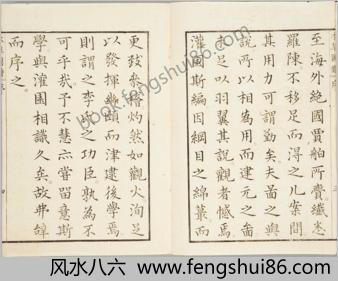 至海外絶國賈舶所賣纖悉
羅陳不移足而得之几案間
其用力可謂勤矣夫啚之與
說所以相為用而建元之啚
未足以羽翼其說觀者憾焉
灌園斯編因綱目之緜蕞而
更灼然如觀火洵足
以發揮賾而津逮後學焉
則謂之李氏之功臣孰為不
可乎哉予不慧亦嘗留意斯
學與灌園相識久矣故弗辭
而序之
book.fengshui86.com
风水八六 - www.fengshui86.com